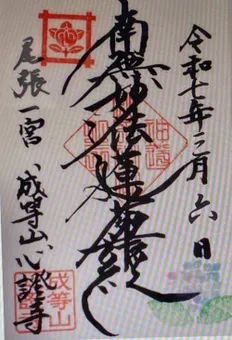 令和七年二月六日
南無妙法蓮華経
尾張一宮 成等山 心證寺
成等山